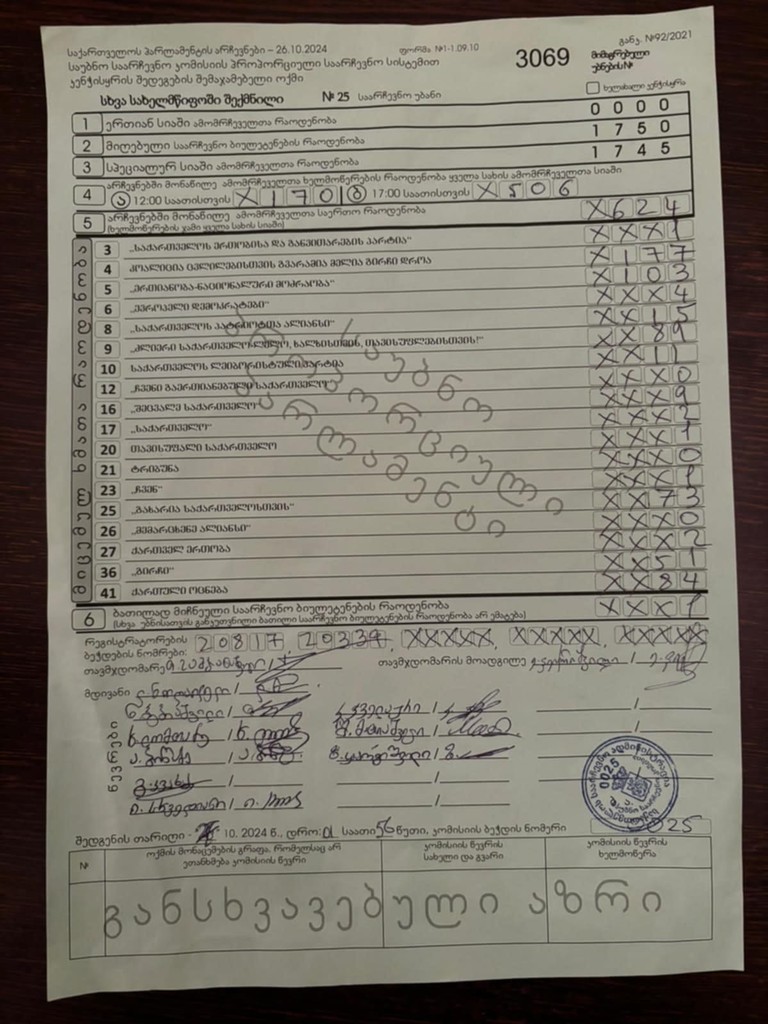 საქართველოს პარლამენტის არჩევნები – 26.10.2024
ფორმა №1-1.09.10
განკ. №92/2021
საუბნო საარჩევნო კომისიის პროპორციული საარჩევნო სისტემით
3069
მიმაგრებული
კენჭისყრის შედეგების შემაჯამებელი ოქმი
უბნების№
სხვა სახელმწიფოში შექმნილი № 25 საარჩევნო უბანი
ხელახალი კენჭისყრა
1 ერთიან სიაში ამომრჩეველთა რაოდენობა 0 0 0 0
2 მიღებული საარჩევნო ბიულეტენების რაოდენობა 1 7 5 0
3 სპეციალურ სიაში ამომრჩეველთა რაოდენობა 1 7 4 5
4 არჩევნებში მონაწილე ამომრჩეველთა ხელმოწერების რაოდენობა ყველა სახის ამომრჩეველთა სიაში
ა 12:00 საათისთვის X 1 7 0 ბ 17:00 საათისთვის X 5 0 6
5 არჩევნებში მონაწილე ამომრჩეველთა საერთო რაოდენობა X 6 2 4
(ხელმოწერების ჯამი ყველა სახის სიაში)
3 „საქართველოს ერთობისა და განვითარების პარტია“ X X X 1
4 კოალიცია ცვლილებისთვის გვარამია მელია გირჩი დროა X 1 7 7
5 „ერთიანობა-ნაციონალური მოძრაობა“ X 1 0 3
6 „ევროპული დემოკრატები“ X X X 4
8 „საქართველოს პატრიოტთა ალიანსი“ X X 1 5
9 „ძლიერი საქართველო-ლელო, ხალხისთვის, თავისუფლებისთვის!“ X X 8 9
10 საქართველოს ლეიბორისტული პარტია X X 1 1
12 „ჩვენი გაერთიანებული საქართველო“ X X X 0
16 „შეცვალე საქართველო“ X X X 9
17 „საქართველო“ X X X 2
20 თავისუფალი საქართველო X X X 1
21 ტრიბუნა X X X 0
23 „ჩვენ“ X X X 1
25 „გახარია საქართველოსთვის“ X X 7 3
26 „მემარცხენე ალიანსი“ X X X 0
27 ქართველ ერთობა X X X 2
36 „გირჩი“ X X 5 1
41 ქართული ოცნება X X 8 4
საუბნო
პროპორციული
პარლამენტი
6 ბათილად მიჩნეული საარჩევნო ბიულეტენების რაოდენობა X X X 1
(სხვა უბნისათვის განკუთვნილი ბათილი საარჩევნო ბიულეტენების რაოდენობა არ ემატება)
რეგისტრატორების
ბეჭდების ნომრები: 20817, 20339, XXXXX, XXXXX, XXXXX
თავმჯდომარე
თავმჯდომარის მოადგილე
მდივანი
წევრები
0025
შედგენის თარიღი - 10. 2024 წ., დრო: 01 საათი 56 წუთი, კომისიის ბეჭდის ნომერი 0025
№
ოქმის მონაცემების გრაფა, რომელსაც არ
ეთანხმება კომისიის წევრი
კომისიის წევრის
სახელი და გვარი
კომისიის წევრის
ხელმოწერა
განსხვავებული აზრი